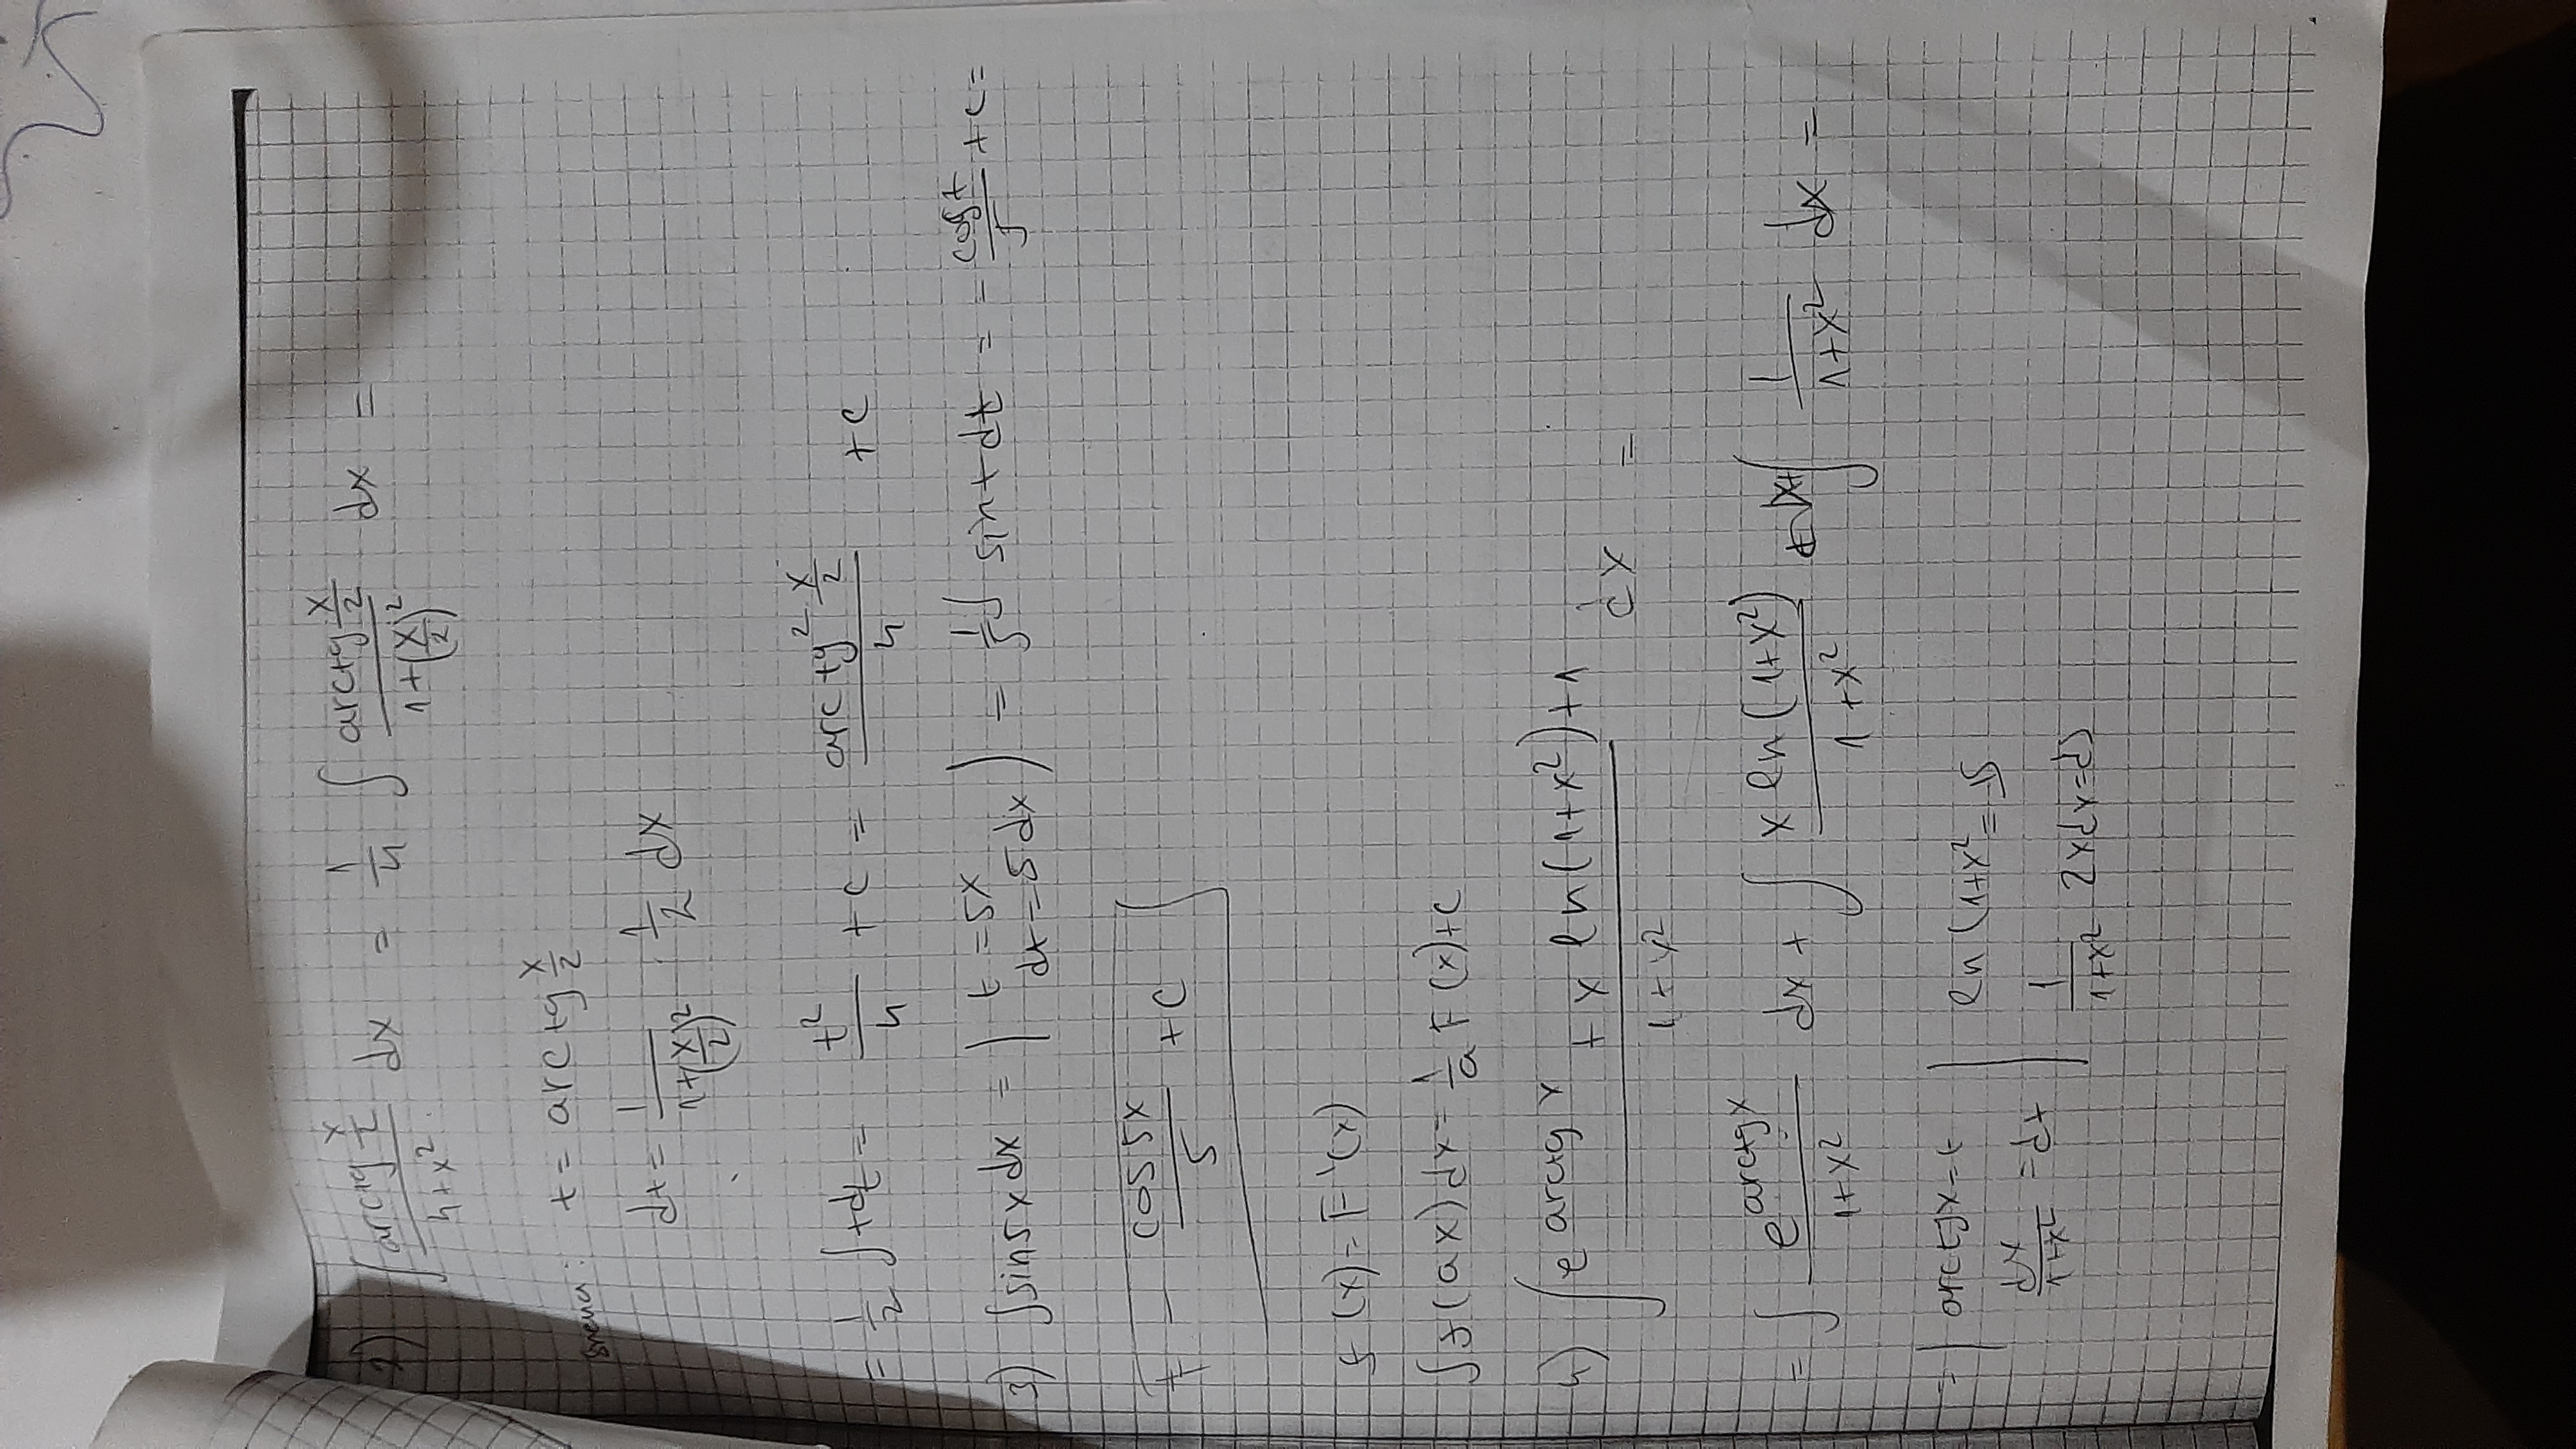 2) ∫ arctg x/2 / 4+x² dx = 1/4 ∫ arctg x/2 / 1+(x/2)² dx =
smena: t = arctg x/2
dt = 1 / 1+(x/2)² · 1/2 dx
= 1/2 ∫ t dt = t²/4 + c = arctg² x/2 / 4 + c
3) ∫ sin5x dx = | t = 5x dt = 5dx | = 1/5 ∫ sin t dt = - cos t / 5 + c =
= - cos 5x / 5 + C
f(x) = F'(x)
∫ f(ax) dx = 1/a F(x) + C
4) ∫ e^arctg x + x ln(1+x²) + 1 / 1+x² dx =
= ∫ e^arctg x / 1+x² dx + ∫ x ln(1+x²) / 1+x² dx + ∫ 1 / 1+x² dx =
= | arctg x = t | ln(1+x² = s
dx / 1+x² = dt | 1 / 1+x² 2x dx = ds